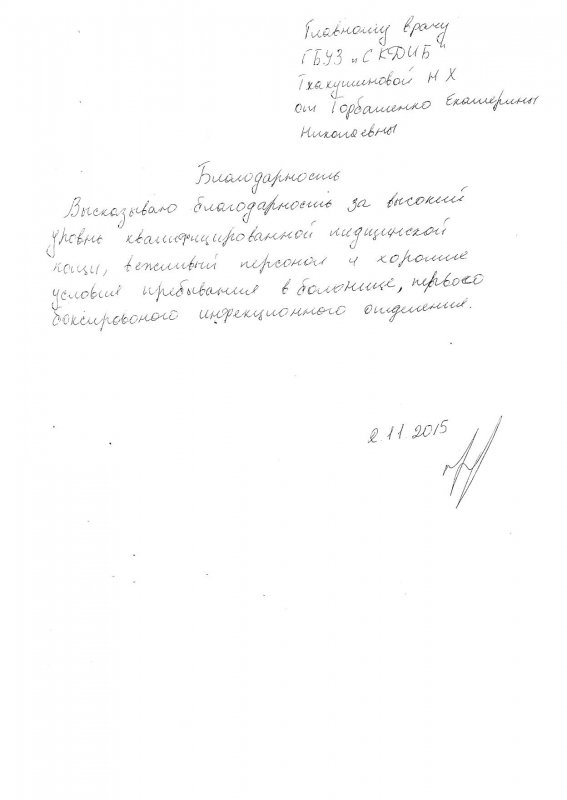 Главному врачу
ГБУЗ „СКДИБ"
Тхакушиновой Н Х
от Горбатенко Екатерины
Николаевны
Благодарность
Высказываю благодарность за высокий
уровнь квалифицированной медицинской
вежливый персонал и хорошие
условия пребывания в больнице, первого
инфекционного отделения.
2.11.2015